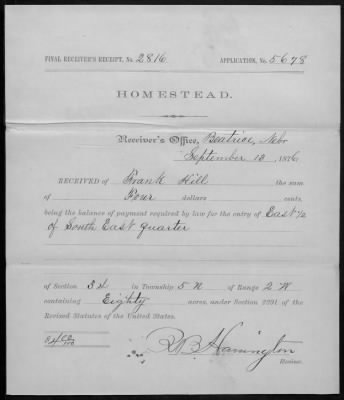 FINAL RECEIVER'S RECEIPT, No. 2816 APPLICATION, No. 5678
HOMESTEAD.
Receiver's Office, Beatrice, Nebr
September 13 1876
RECEIVED of Frank Hill the sum
of Four dollars cents,
being the balance of payment required by law for the entry of East ½
of South East quarter
of Section 34 in Township 5 N of Range 2 W
containing Eighty acres, under Section 2291 of the
Revised Statutes of the United States.
$4 00/100
R B Harrington
Receiver.